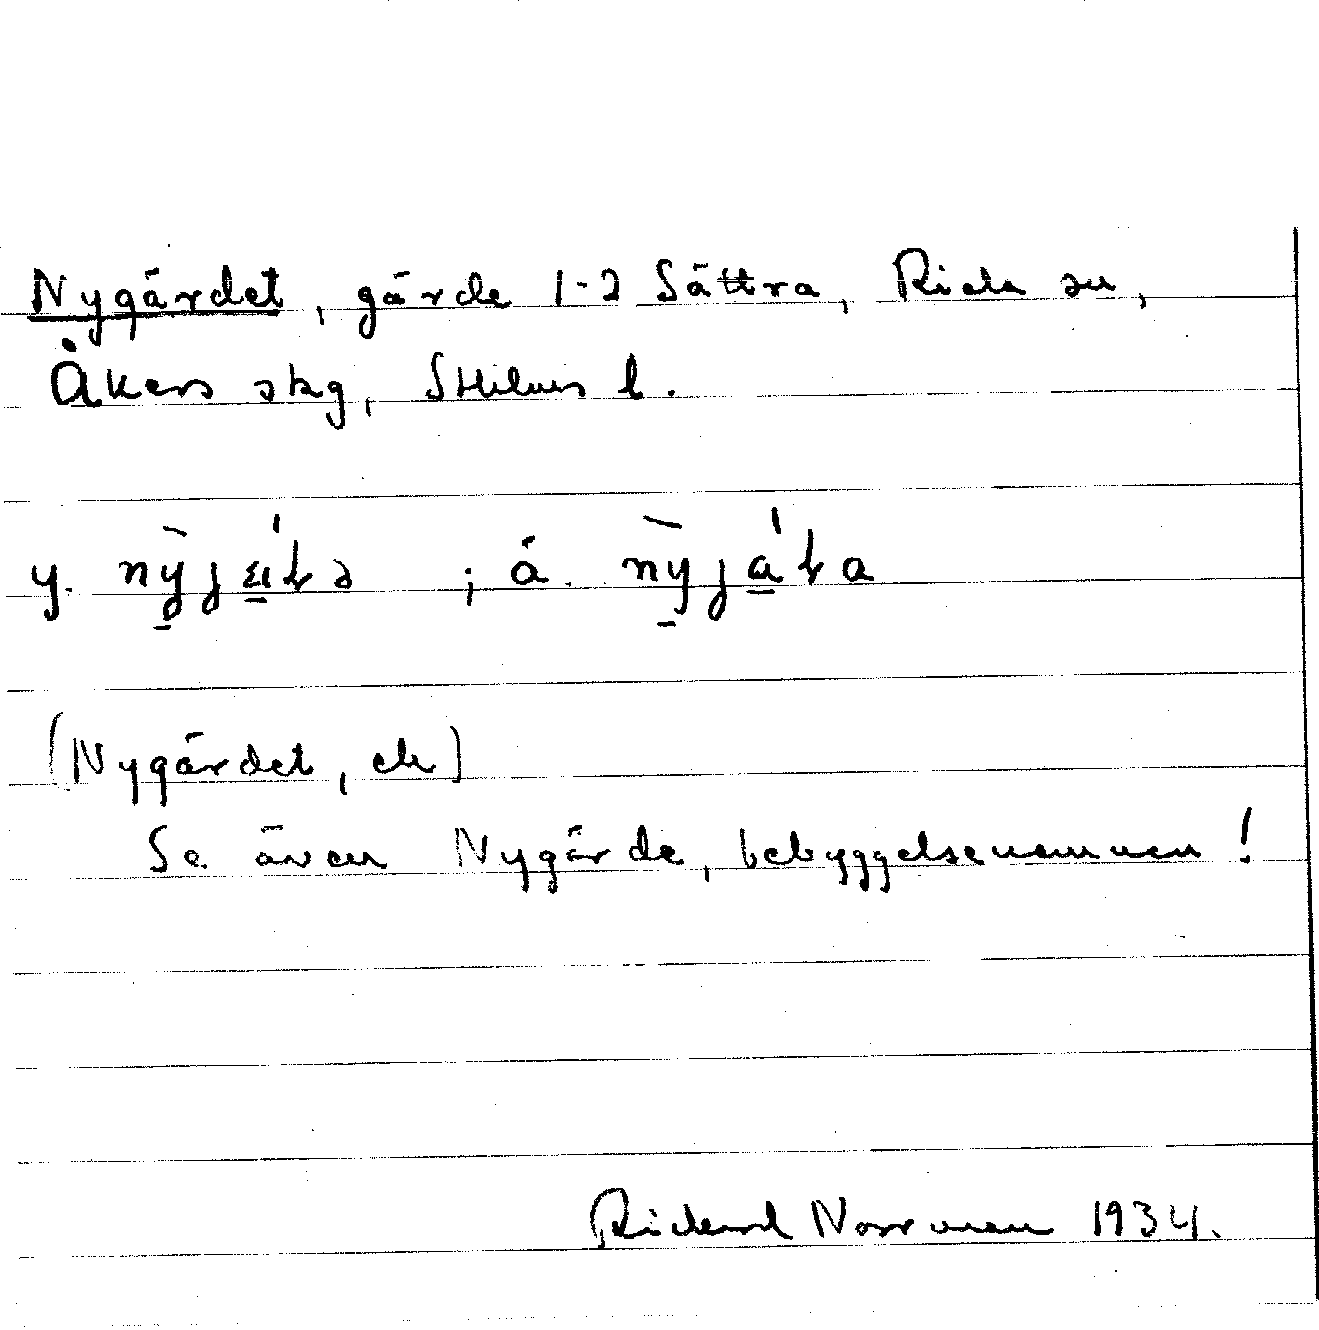 Nygärdet, gärde 1-2 Sättra, Riala sn,
Åkers skg, Sthlms l.
y. ; ä.
(Nygärdet, ek)
Se även Nygärde, bebyggelsenamnen!
Rickard Norrman 1934.